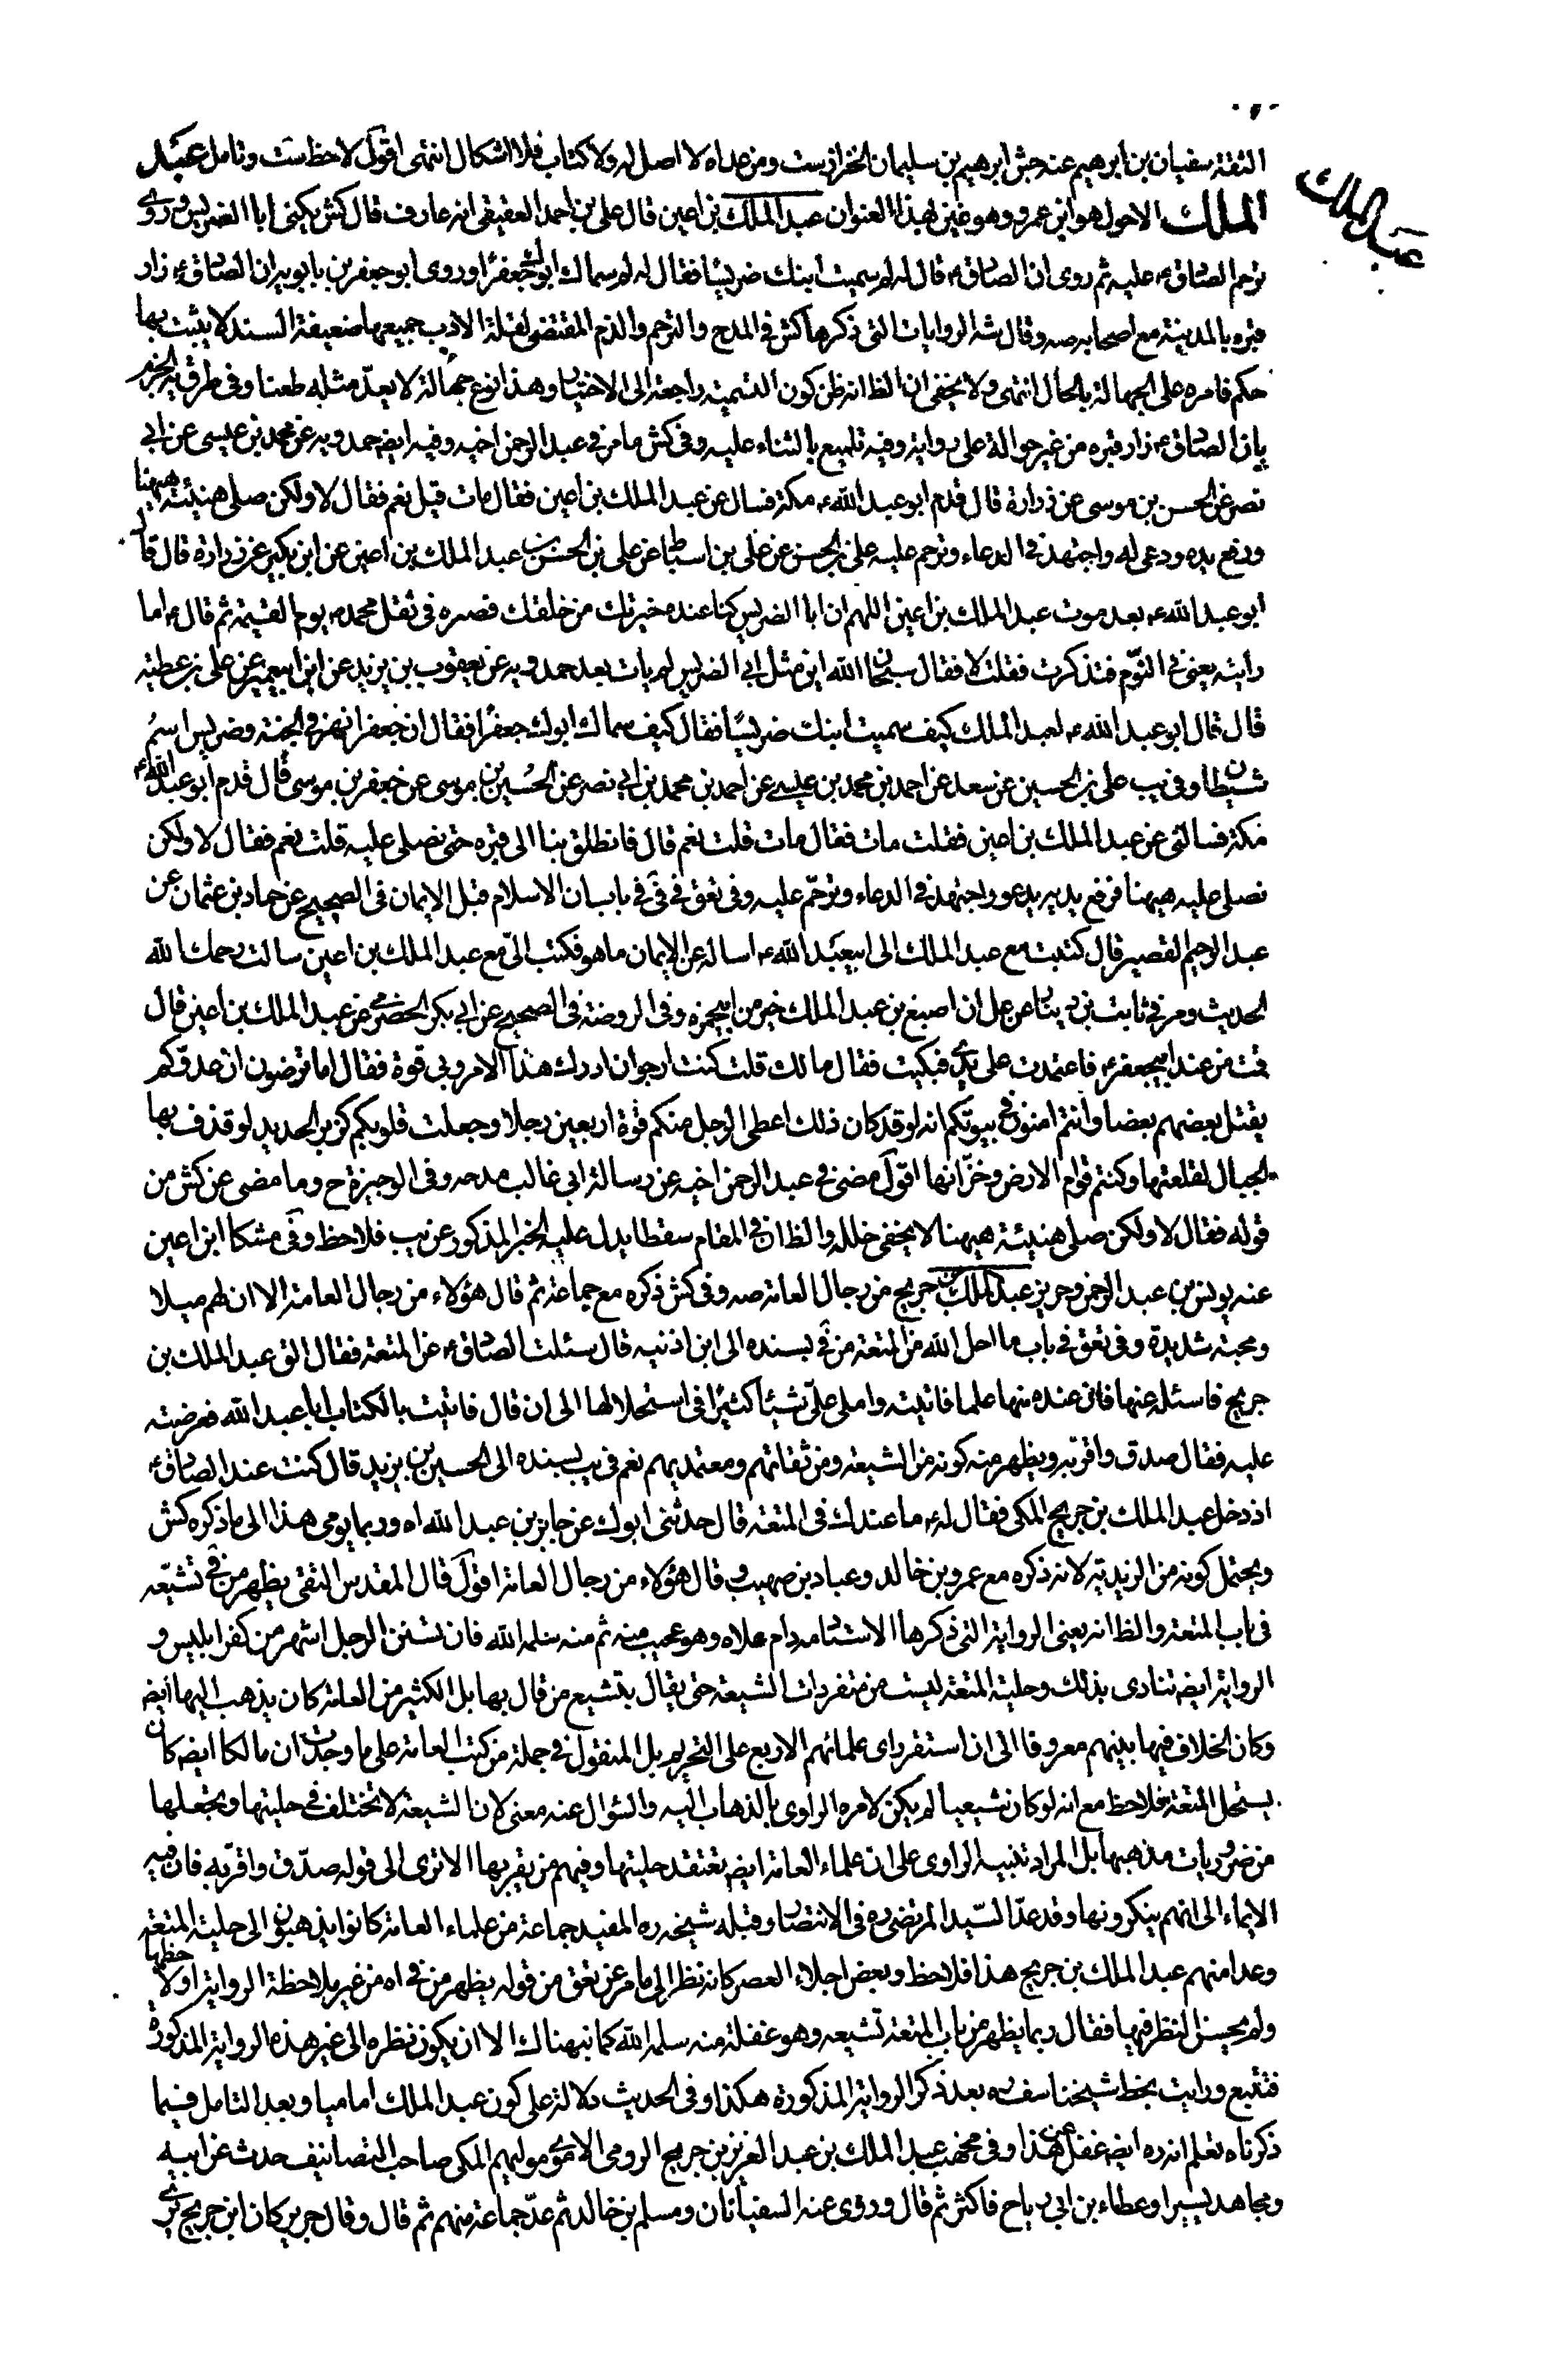 عبد الملك
الثقة سفيان بن ابرهيم عنه جش ابرهيم بن سليمان الخزاز ست ومن عداه لا اصل له ولا كتاب فلا اشكال انتهى اقول لاحظ ست وتامل عبد
الملك الاحول هو ابن عمرو وهو غير هذا العنوان عبد الملك بن اعين قال على بن احمد العقيقى انه عارف قال كش يكنى ابا الضريس وروى
ترحم الصادق ع عليه ثم روى ان الصادق ع قال له لم سميت ابنك ضريسا فقال له لم سماك ابوك جعفرا وروى ابو جعفر بن بابويه ان الصادق ع زار
قبره بالمدينة مع اصحابه صه وقال شه الروايات التى ذكرها كش فى المدح والترحم والذم المقتضى لقلة الادب جميعها ضعيفة السند لا يثبت بها
حكم فامره على الجهالة بالحال انتهى ولا يخفى ان الظ انه ظن كون التسمية راجعة الى الاختيار وهذا نوع جهالة لا يعد مثله طعنا وفى طرق يه الخبر
بان الصادق ع زار قبره من غير حوالة على رواية وفيه تلميع بالثناء عليه وفى كش ما مر فى عبد الرحمن اخيه وفيه ايضه حمدويه عن محمد بن عيسى عن ابى
نصر عن الحسن بن موسى عن زرارة قال قدم ابو عبد الله ع مكة فسال عن عبد الملك بن اعين فقال مات قيل نعم فقال لا ولكن صلى هنيئة هيهنا
ورفع يده ودعى له واجتهد فى الدعاء وترحم عليه على بن الحسن عن على بن اسباط عن على بن الحسن بن عبد الملك بن اعين عن ابن بكير عن زرارة قال قال
ابو عبد الله ع بعد موت عبد الملك بن اعين اللهم ان ابا الضريس كنا عنده خيرتك من خلقك فصيره فى ثقل محمد ص يوم القيمة ثم قال ع اما
رايته يعنى فى النوم فتذكرت فقلت لا فقال سبحان الله اين مثل ابى الضريس لم يات بعد حمدويه عن يعقوب بن يزيد عن ابن ابى عمير عن على بن عطيه
قال قال ابو عبد الله ع لعبد الملك كيف سميت ابنك ضريسا فقال كيف سماك ابوك جعفرا فقال ان جعفرا نهر فى الجنة وضريس اسم
شيطان وفى يب على بن الحسين عن سعد عن احمد بن محمد بن عيسى عن احمد بن محمد بن ابى نصر عن الحسين بن موسى عن جعفر بن موسى قال قدم ابو عبد الله ع
مكة فسالنى عن عبد الملك بن اعين فقلت مات فقال مات قلت نعم قال فانطلق بنا الى قبره حتى نصلى عليه قلت نعم فقال لا ولكن
نصلى عليه هيهنا فرفع يديه يدعو واجتهد فى الدعاء وترحم عليه وفى تعق فى فى فى باب ان الاسلام قبل الايمان فى الصحيح عن حماد بن عثمان عن
عبد الرحيم القصير قال كتبت مع عبد الملك الى ابيعبد الله ع اساله عن الايمان ما هو فكتب الى مع عبد الملك بن اعين سالت رحمك الله
الحديث ومر فى ثابت بن دينار عن عل ان اصبغ بن عبد الملك خير من ابيحمزه وفى الروضة فى الصحيح عن ابى بكر الحضرمى عن عبد الملك بن اعين قال
قمت من عند ابيجعفر ع فاعتمدت على يدى فبكيت فقال مالك قلت كنت ارجو ان ادرك هذا الامر وبى قوة فقال اما ترضون ان عدوكم
يقتل بعضهم بعضا وانتم امنون فى بيوتكم انه لو قد كان ذلك اعطى الرجل منكم قوة اربعين رجلا وجعلت قلوبكم كزبر الحديد لو قذف بها
الجبال لقلعتها وكنتم قوام الارض وخزانها اقول مضى فى عبد الرحمن اخيه عن رسالة ابى غالب مدحه وفى الوجيزة ح وما مضى عن كش من
قوله فقال لا ولكن صلى هنيئة هيهنا لا يخفى خلله والظ ان فى المقام سقطا يدل عليه الخبر المذكور عن يب فلاحظ وفى مشكا ابن اعين
عنه يونس بن عبد الرحمن وحريز عبد الملك بن جريح من رجال العامة صه وفى كش ذكره مع جماعة ثم قال هؤلاء من رجال العامة الا ان لهم ميلا
ومحبة شديدة وفى تعق فى باب ما احل الله من المتعة من فى بسنده الى ابن اذنيه قال سئلت الصادق ع عن المتعة فقال الق عبد الملك بن
جريح فاسئله عنها فان عنده منها علما فاتيته واملى على شيئا كثيرا فى استحلالها الى ان قال فاتيت بالكتاب ابا عبد الله فعرضته
عليه فقال صدق واقر به ويظهر منه كونه من الشيعة ومن ثقاتهم ومعتمديهم نعم فى يب بسنده الى الحسين بن يزيد قال كنت عند الصادق ع
اذ دخل عبد الملك بن جريح المكى فقال له ع ما عندك فى المتعة قال حدثنى ابوك عن جابر بن عبد الله اه وربما يومى هذا الى ما ذكره كش
ويحتمل كونه من الزيدية لانه ذكره مع عمرو بن خالد وعباد بن صهيب وقال هؤلاء من رجال العامة اقول قال المقدس التقى يظهر من فى تشيعه
فى باب المتعة والظ انه يعنى الرواية التى ذكرها الاستاد دام علاه وهو عجيب منه ثم منه سلمه الله فان تسنن الرجل اشهر من كفر ابليس و
الرواية ايضه تنادى بذلك وحلية المتعة ليست من متفردات الشيعة حتى يقال بتشيع من قال بها بل الكثير من العامة كان يذهب اليها ايضه
وكان الخلاف فيها بينهم معروفا الى ان استقر راى علمائهم الاربع على التحريم بل المنقول فى جملة من كتب العامة على ما وجدت ان مالكا ايضه كان
يستحل المتعة فلاحظ مع انه لو كان شيعيا لم يكن لامره الراوى بالذهاب اليه والسؤال عنه معنى لان الشيعة لا تختلف فى حليتها وتجعلها
من ضروريات مذهبها بل المراد تنبيه الراوى على ان علماء العامة ايضه تعتقد حليتها وفيهم من يقر بها الا ترى الى قوله صدق واقر به فان فيه
الايماء الى انهم ينكرونها وقد عد السيد المرتضى ره فى الانتصار وقبله شيخه ره المفيد جماعة من علماء العامة كانوا يذهبون الى حلية المتعة
وعدا منهم عبد الملك بن جريح هذا فلاحظ وبعض اجلاء العصر كانه نظر الى ما مر عن تعق من قوله يظهر من فى اه من غير ملاحظة الرواية او لاحظها
ولم يحسن النظر فيها فقال ربما يظهر من باب المتعة تشيعه وهو غفلة منه سلمه الله كما نبهناك الا ان يكون نظره الى غير هذه الرواية المذكورة
فتتبع ورايت بخط شيخنا يوسف ره بعد ذكر الرواية المذكورة هكذا وفى الحديث دلالة على كون عبد الملك اماميا وبعد التامل فيما
ذكرناه تعلم انه ره ايضه غفل عن هذا وفى مخهب عبد الملك بن عبد العزيز بن جريح الرومى الاموى مولاهم المكى صاحب التصانيف حدث عن ابيه
ومجاهد يسيرا وعطاء بن ابى رباح فاكثر ثم قال وروى عنه السفيانان ومسلم بن خالد ثم عد جماعة منهم ثم قال وقال جرير كان ابن جريح يرى